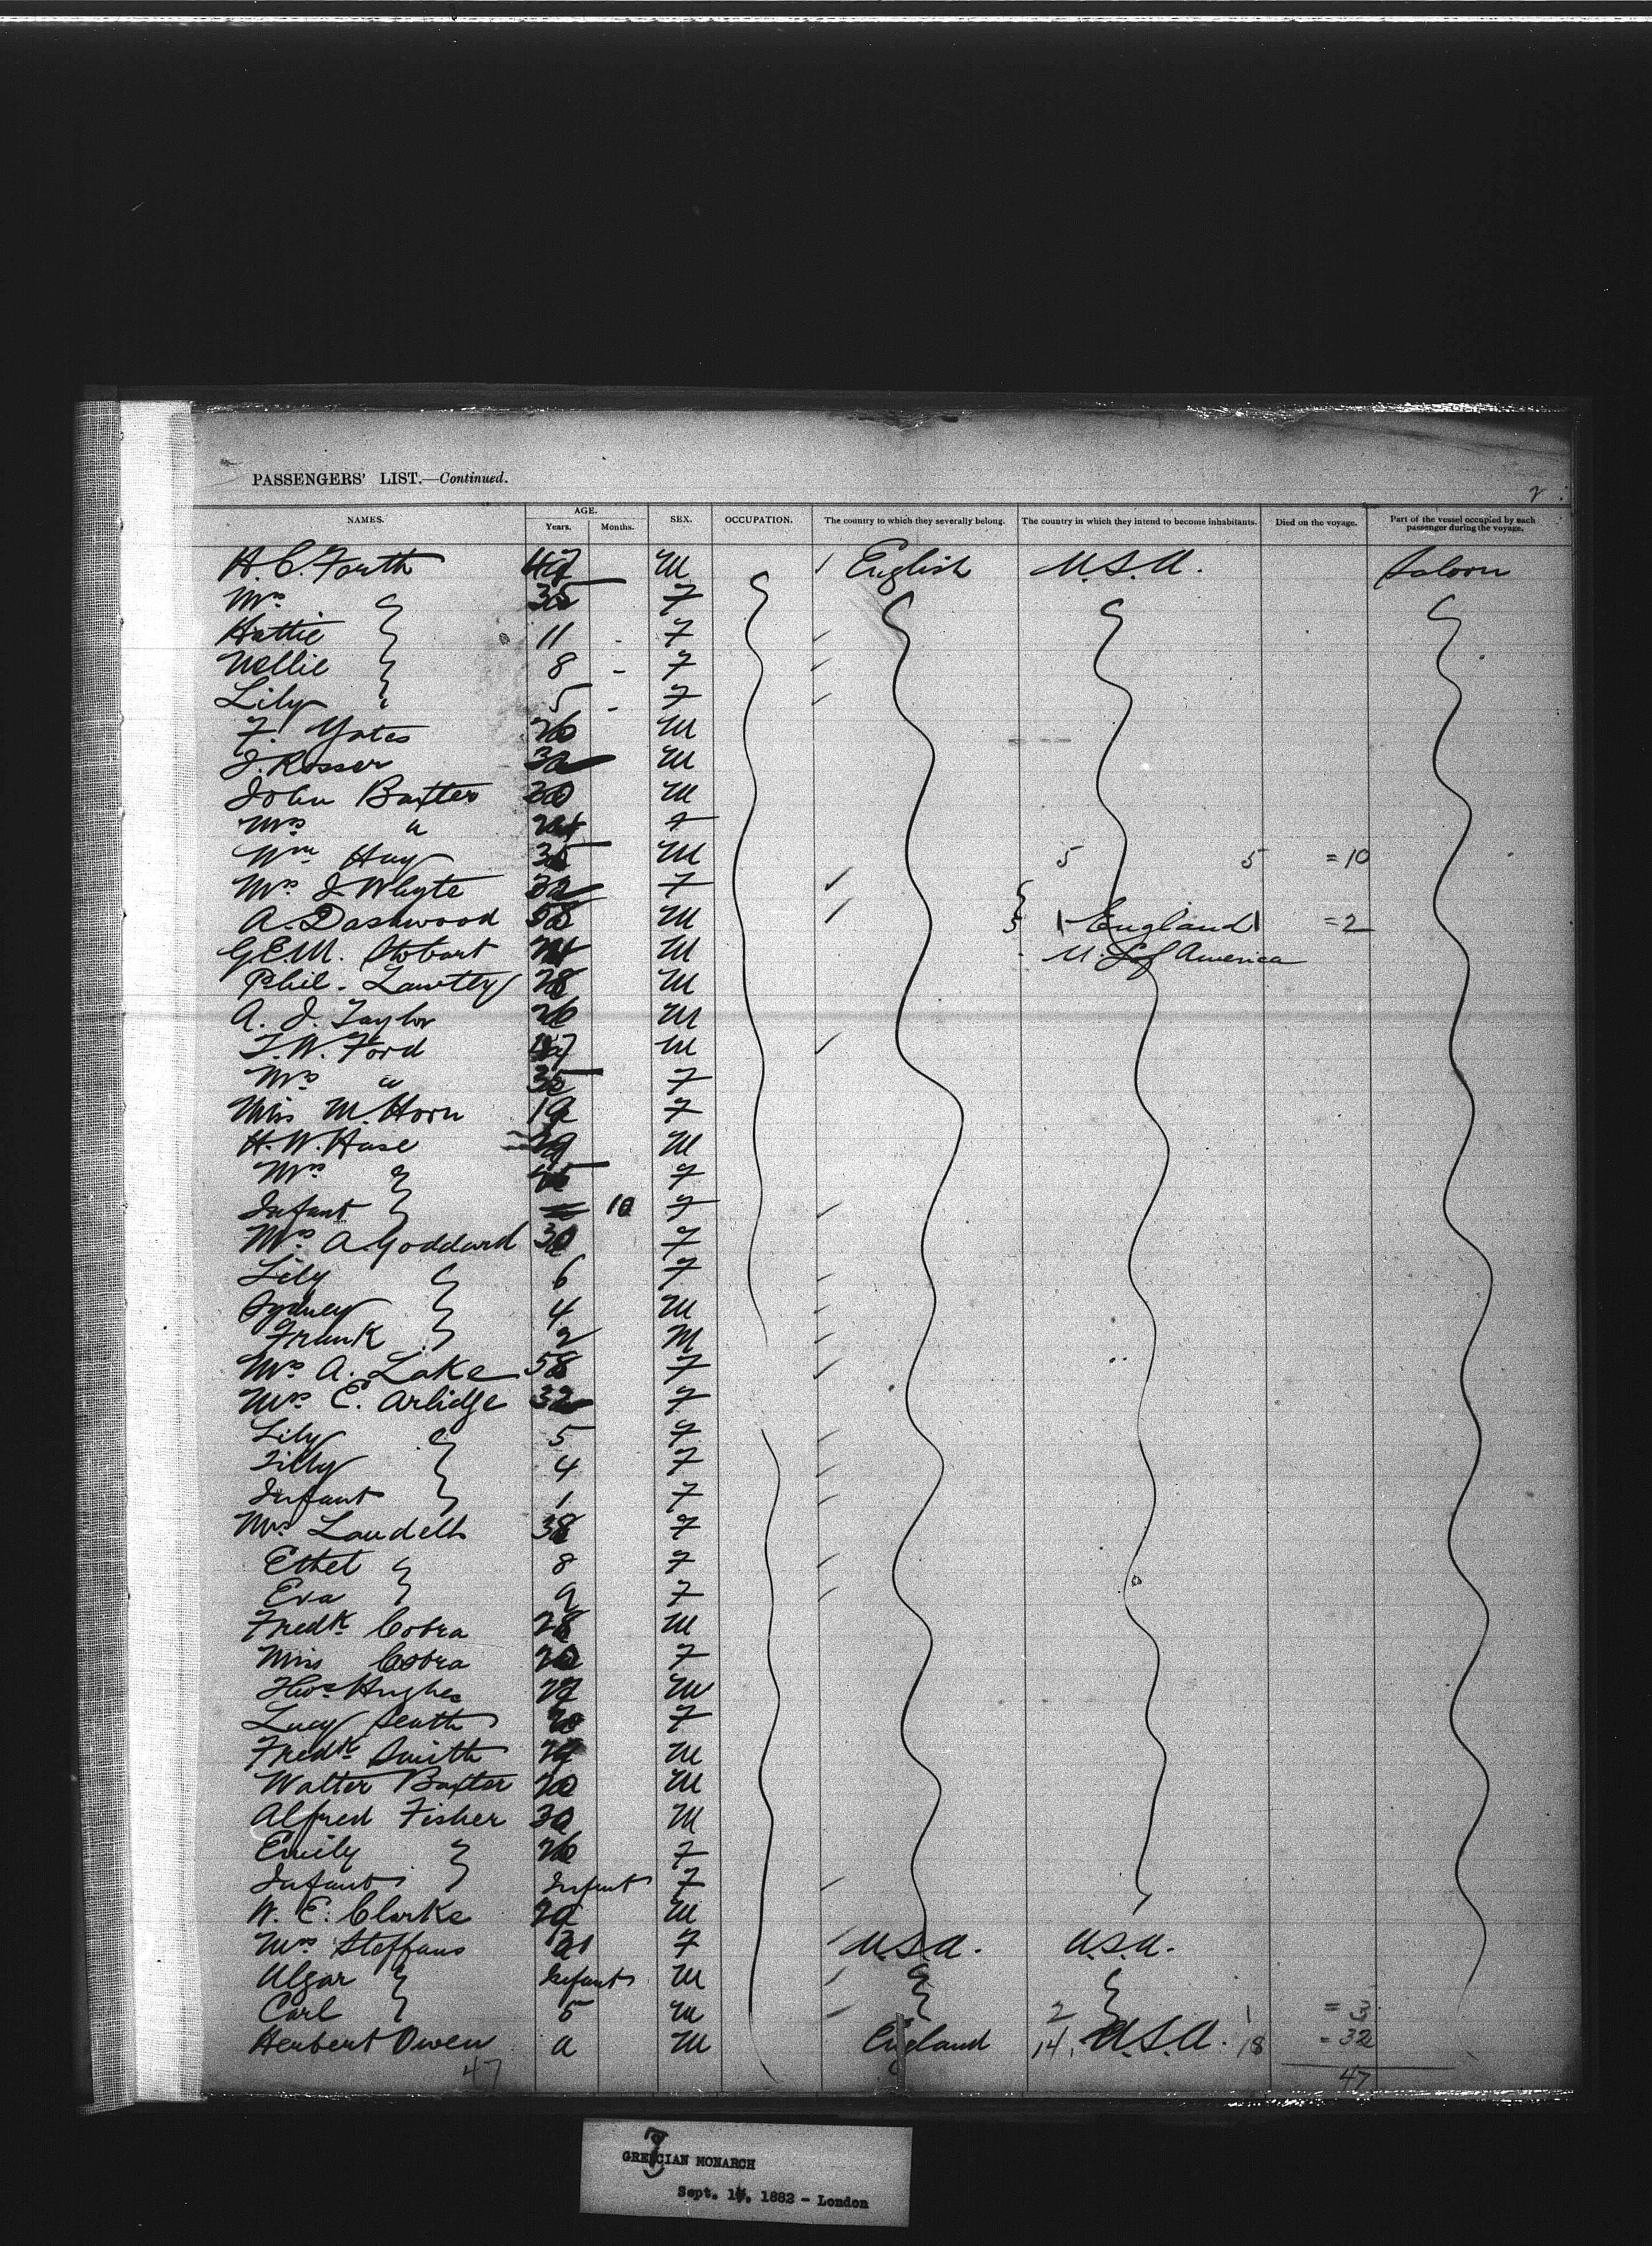 PASSENGERS' LIST.—Continued.
2
NAMES. AGE. Years. Months. SEX. OCCUPATION. The country to which they severally belong. The country in which they intend to become inhabitants. Died on the voyage. Part of the vessel occupied by each passenger during the voyage.
H. C. Forth 47 M English U.S.A. Saloon
Mrs 35 F
Hattie 11 - F
Nellie 8 - F
Lily " 5 - F
F. Yates 26 M
J. Rosser 32 M
John Baxter 30 M
Mrs " 24 F
Wm Hay 35 M 5 5 = 10
Mrs J. Whyte 32 F
A. Dashwood 58 M 1 England 1 = 2
G.E.M. Stobart 24 M U. S. of America
Phil. 28 M
A. J. Taylor 26 M
T. W. Ford 47 M
Mrs " 35 F
Miss M. Horn 19 F
H. W. Hase 29 M
Mrs F
Infant 10 F
Mrs A. Goddard 30 F
Lily 6 F
Sydney 4 M
Frank 2 M
Mrs A. Lake 58 F
Mrs E. Arlidge 32 F
Lily 5 F
Tilly 4 F
Infant 1 F
Mrs Laudells 38 F
Ethel 8 F
Eva 9 F
Fredk Cobra 28 M
Miss Cobra 20 F
Thos Hughes 27 M
Lucy 20 F
Fredk Smith 29 M
Walter Baxter 20 M
Alfred Fisher 30 M
Emily 26 F
Infant Infant F
W. E. Clarke 29 M
Mrs Steffans 31 F U.S.A. U.S.A.
Algar Infant M
Carl 5 M 2 1 = 3
Herbert Owen 9 M England 14 U.S.A. 18 = 32
47 47
GRECIAN MONARCH
Sept. 1 , 1882 - London